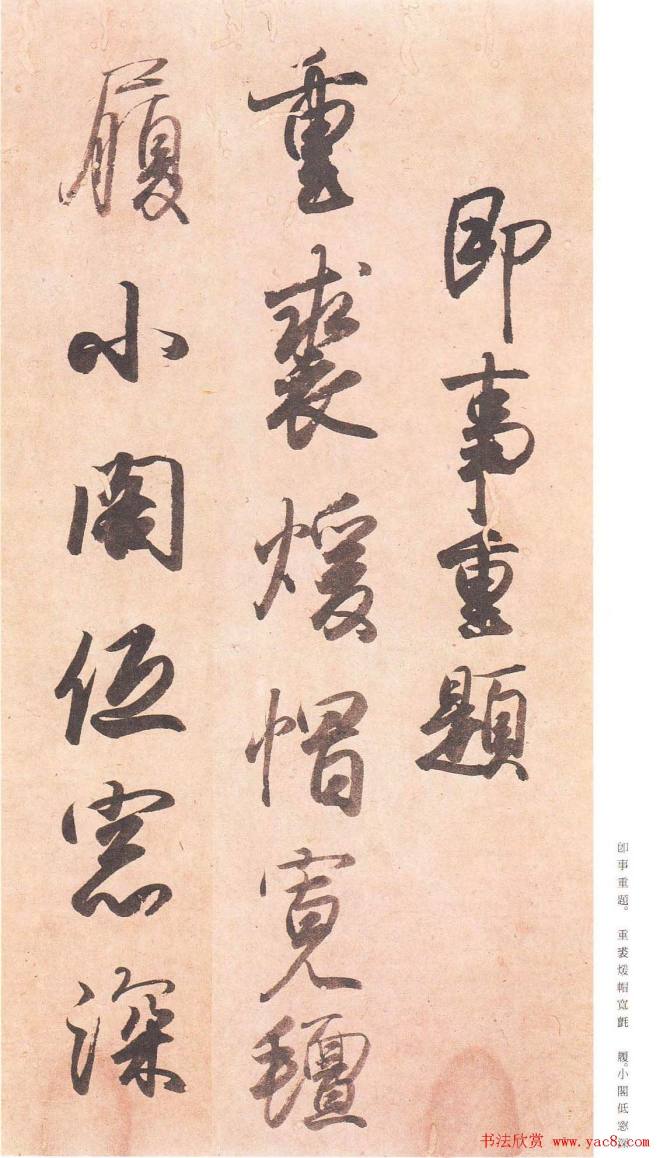 即事重題
重裘煖帽寬氊
履小閣低窓深
即事重題。 重裘煖帽寬氈 履。小閣低窓深
书法欣赏 www.yac8.com